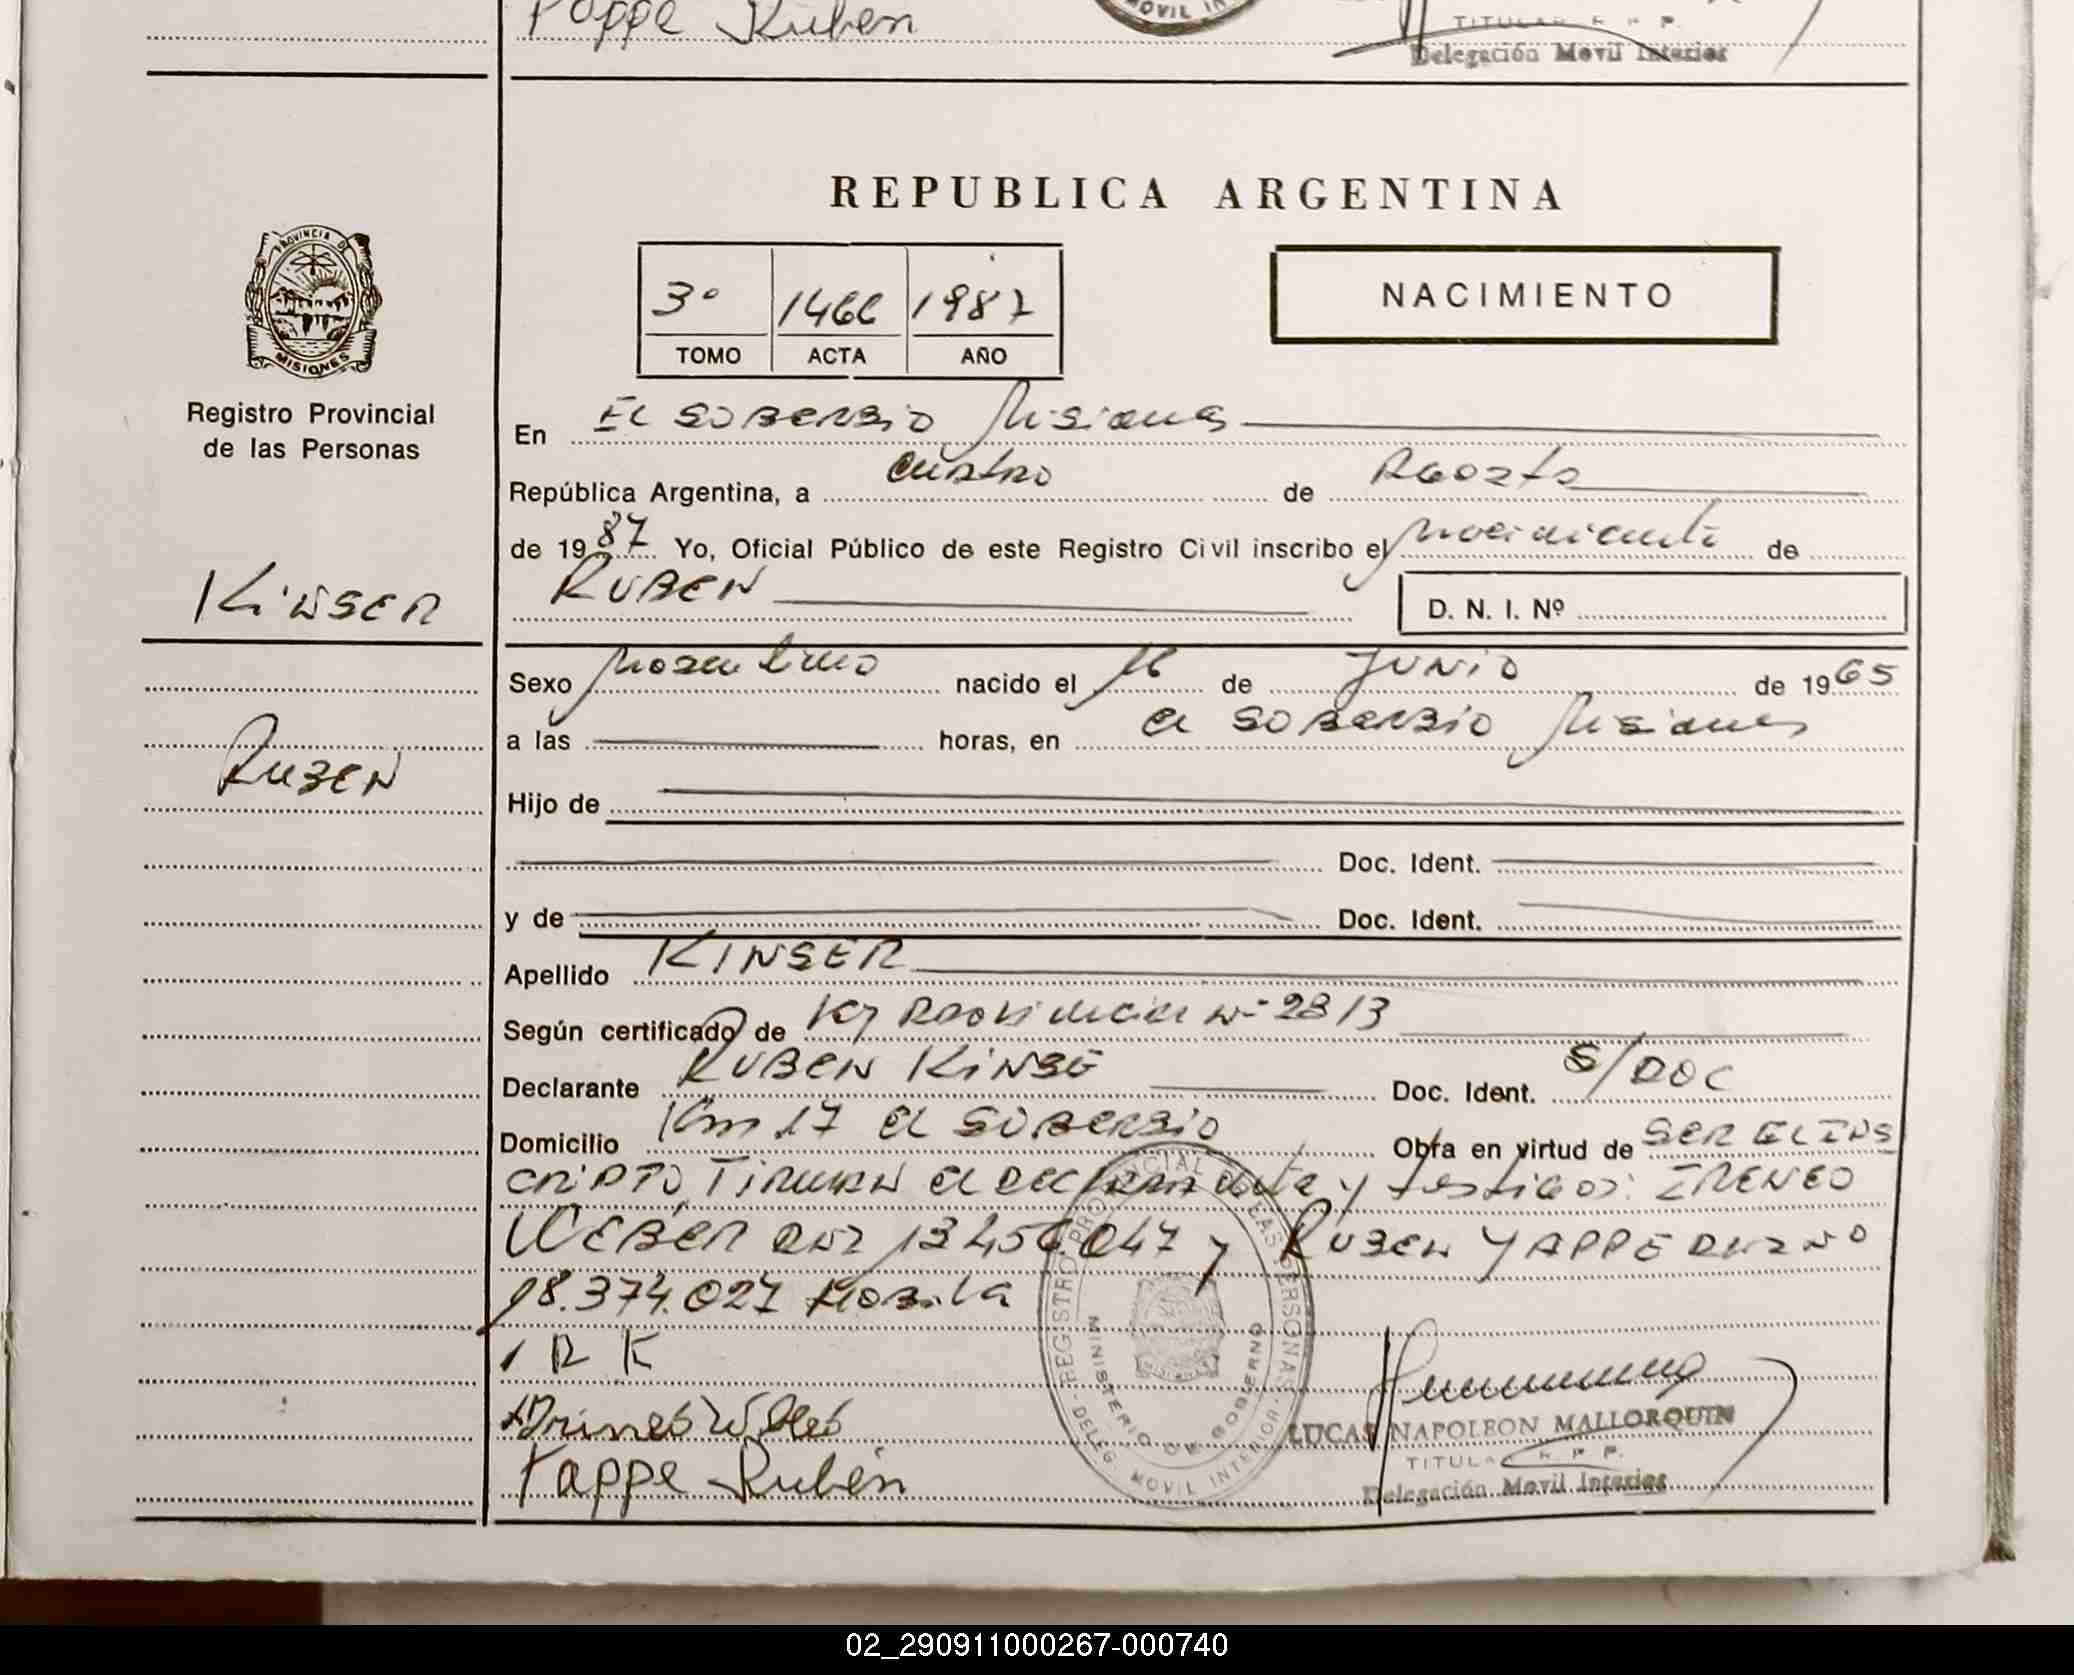 Pappe Ruben
MOVIL IN
TITULAR R P P.
Delegación Movil Interior
REPUBLICA ARGENTINA
PROVINCIA DE
MISIONES
3° 1466 1987
TOMO ACTA AÑO
NACIMIENTO
Registro Provincial
de las Personas
En El SOBERBIO Misiones
República Argentina, a cuatro de Agosto
de 1987 Yo, Oficial Público de este Registro Civil inscribo el nacimiento de
KiNSER
RUBEN
D. N. I. Nº
Sexo masculino nacido el 16 de JUNiO de 1965
a las horas, en el SOBERBIO Misiones
RUBEN
Hijo de
Doc. Ident.
y de Doc. Ident.
Apellido KINSER
Según certificado de Ley Provincial Nº 2813
Declarante RUBEN KiNSE Doc. Ident. S/DOC
Domicilio Km 17 el SOBERBIO Obra en virtud de SER ELINS
CRIPTO, Firman el declarante y testigos: IRENEO
WEBER DNI 13.456.047 y RUBEN YAPPE DNI Nº
18.374.027
R K
Yappe Rubén
REGISTRO PROVINCIAL DE LAS PERSONAS
MINISTERIO DE GOBIERNO
DELEG. MOVIL INTERIOR
LUCAS NAPOLEON MALLORQUIN
TITULAR R P P.
Delegación Movil Interior
02_290911000267-000740